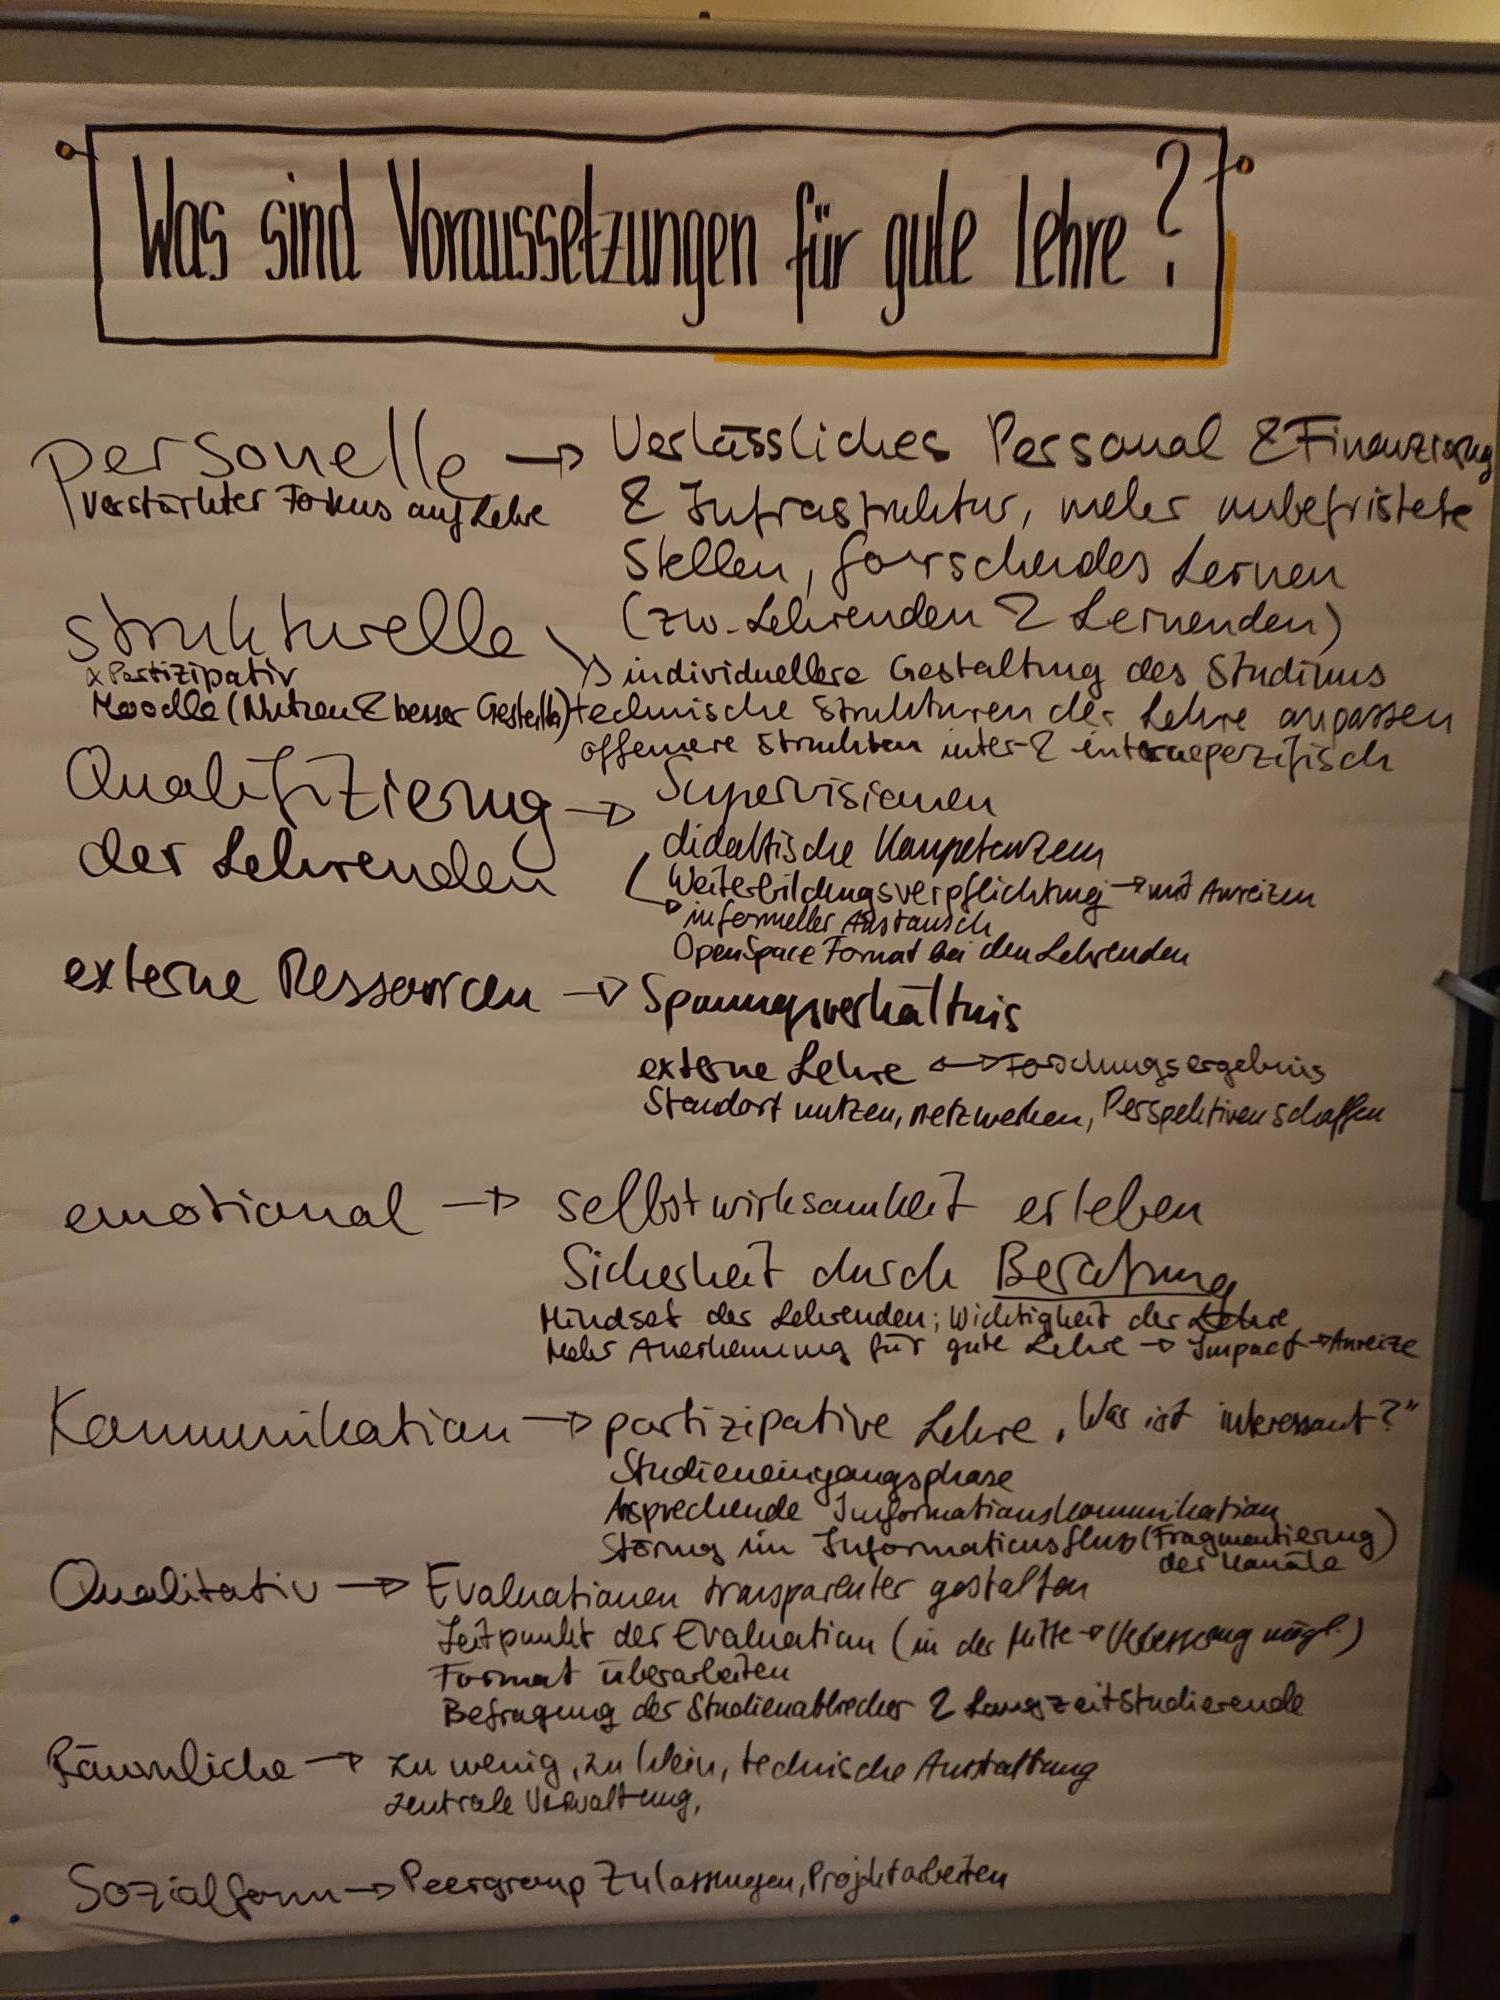 Was sind Voraussetzungen für gute Lehre?
personelle → Verlässliches Personal & Finanzierung
verstärkter Fokus auf Lehre
& Infrastruktur, mehr unbefristete
Stellen, forschendes Lernen
(zw. Lehrenden & Lernenden)
strukturelle
→ individuellere Gestaltung des Studiums
Partizipativ
Moodle (Nutzen & besser Gestalten)
technische Strukturen der Lehre anpassen
offenere Strukturen inter- &
Qualifizierung → Supervisionen
der Lehrenden
didaktische Kompetenzen
Weiterbildungsverpflichtung → mit Anreizen
→ informeller Austausch
OpenSpace Format bei den Lehrenden
externe Ressourcen → Spannungsverhältnis
externe Lehre ↔ Forschungsergebnis
Standort nutzen, netzwerken, Perspektiven schaffen
emotional → selbstwirksamkeit erleben
Sicherheit durch Beratung
Mindset der Lehrenden; Wichtigkeit der Lehre
Mehr Anerkennung für gute Lehre → Impact → Anreize
Kommunikation → partizipative Lehre, "Was ist interessant?"
Studieneingangsphase
Asprechende Informationskommunikation
Störung im Informationsfluss (Fragmentierung
der Kanäle)
Qualitativ → Evaluationen transparenter gestalten
Zeitpunkt der Evaluation (in der Mitte → mögl.)
Format überarbeiten
Befragung der Studienabbrecher & Langzeitstudierende
Räumliche → zu wenig, zu klein, technische Austattung
zentrale Verwaltung,
Sozialform → Peergroup Zulassungen, Projektarbeiten